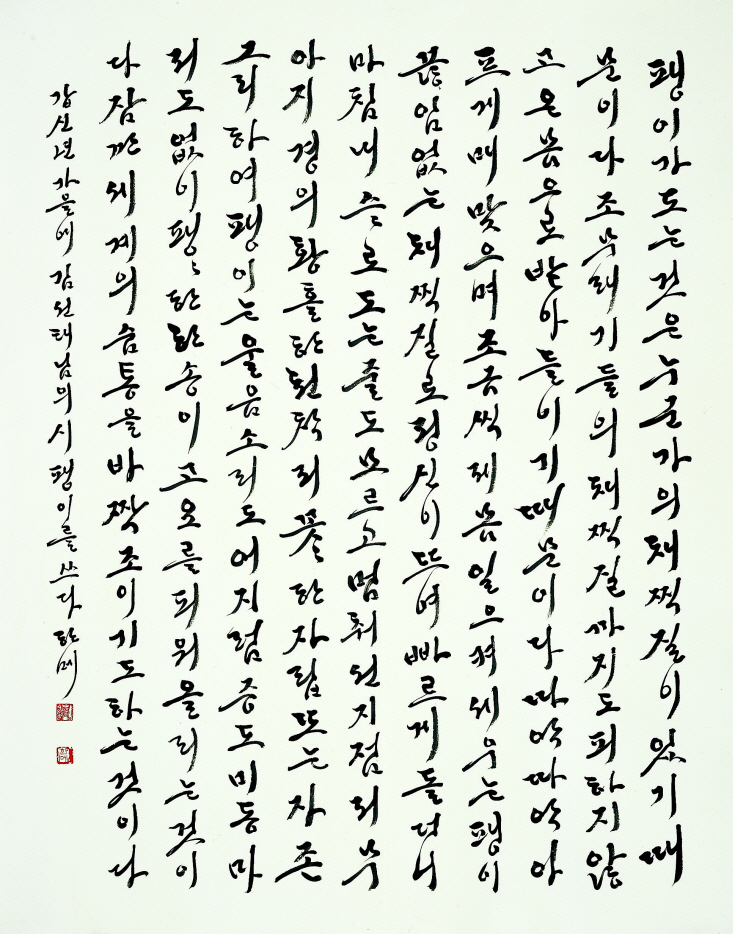 팽이가도는것은누군가의채찍질이있기때
문이다조무래기들의채찍질까지도피하지않
고온몸으로받아들이기때문이다따악따악아
프게매맞으며조금씩제몸일으켜세우는팽이
끊임없는채찍질로정신이뜨여빠르게돌더니
마침내스스로도는줄도모르고멈춰선지점저무
아지경의황홀한천착저꽃한자리또는자존
그리하여팽이는울음소리도어지럼증도미동마
저도없이팽〻한한송이고요를피워올리는것이
다잠깐세계의숨통을바짝조이기도하는것이다
갑신년가을에 김선태님의시 팽이를쓰다 한메